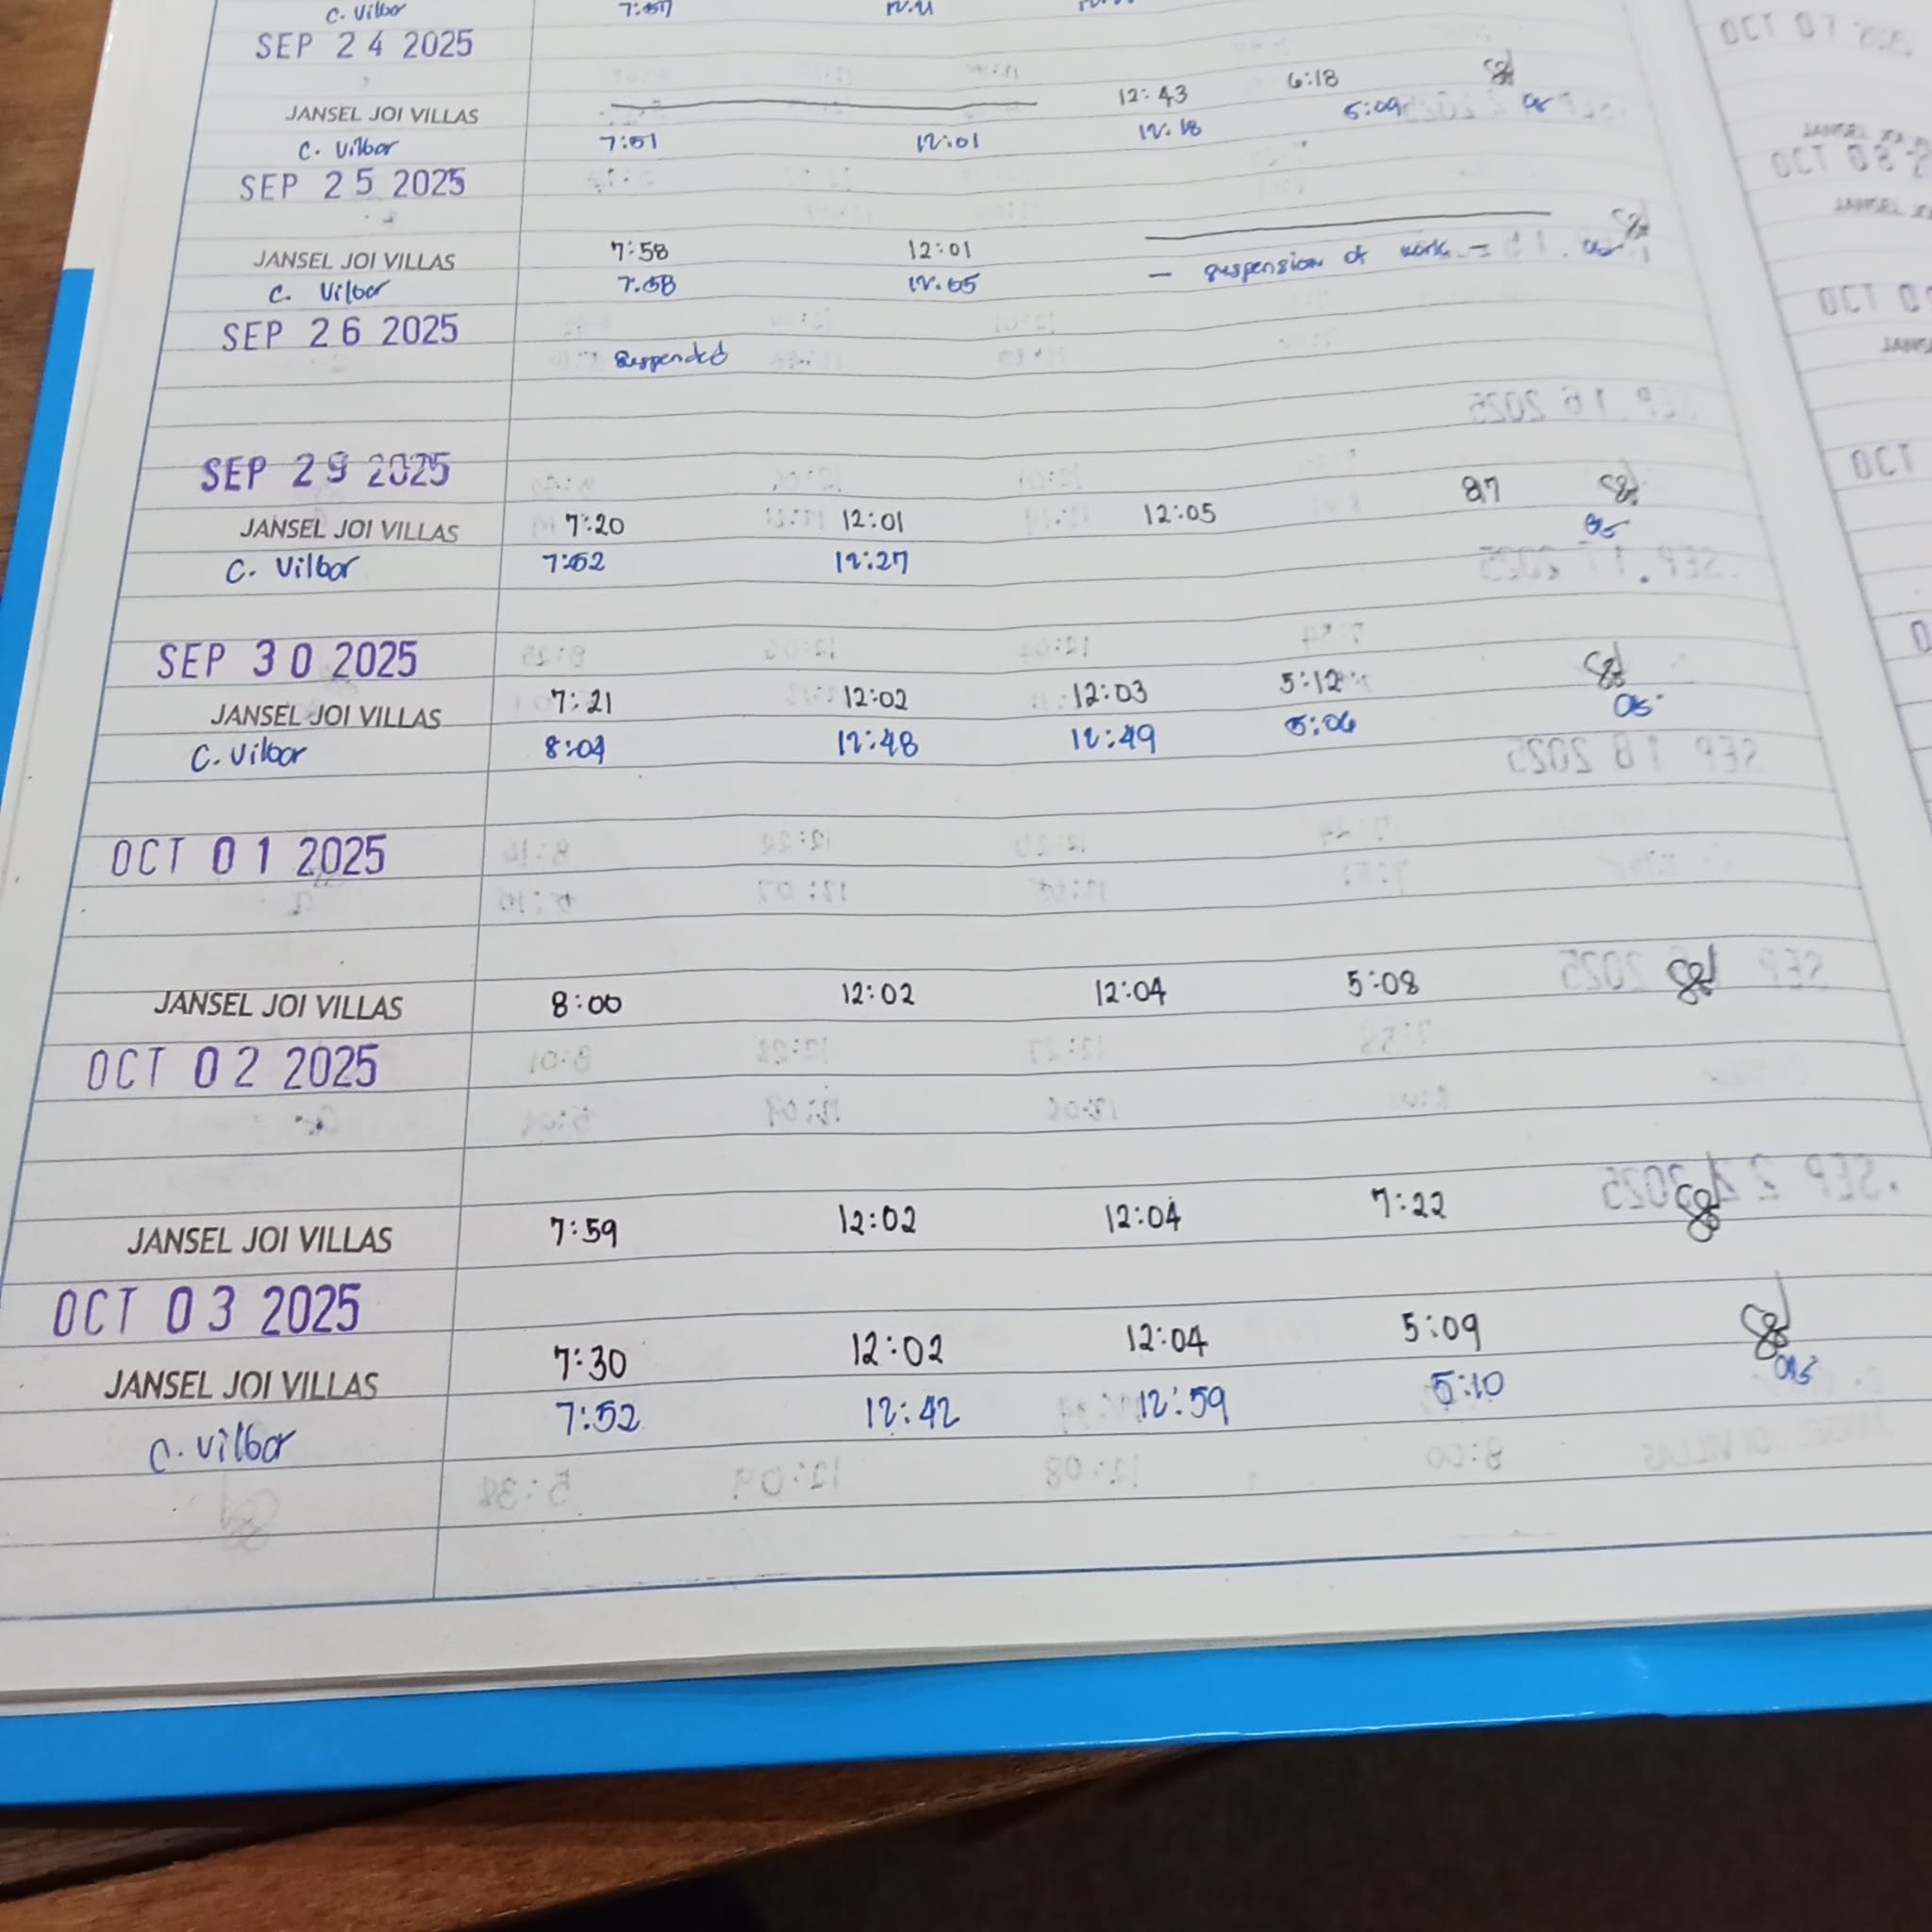 C. Vilbor 7:57
SEP 24 2025
JANSEL JOI VILLAS 12:43 6:18
C. Vilbor 7:51 12:01 12:18 5:09
SEP 25 2025
JANSEL JOI VILLAS 7:58 12:01
C. Vilbor 7:58 12:05 - suspension of work -
SEP 26 2025
Suspended
SEP 29 2025
JANSEL JOI VILLAS 7:20 12:01 12:05
C. Vilbor 7:52 12:27
SEP 30 2025
JANSEL JOI VILLAS 7:21 12:02 12:03 5:12
C. Vilbor 8:04 12:48 12:49 5:06
OCT 01 2025
JANSEL JOI VILLAS 8:00 12:02 12:04 5:08
OCT 02 2025
JANSEL JOI VILLAS 7:59 12:02 12:04 7:22
OCT 03 2025
JANSEL JOI VILLAS 7:30 12:02 12:04 5:09
C. Vilbor 7:52 12:42 12:59 5:10